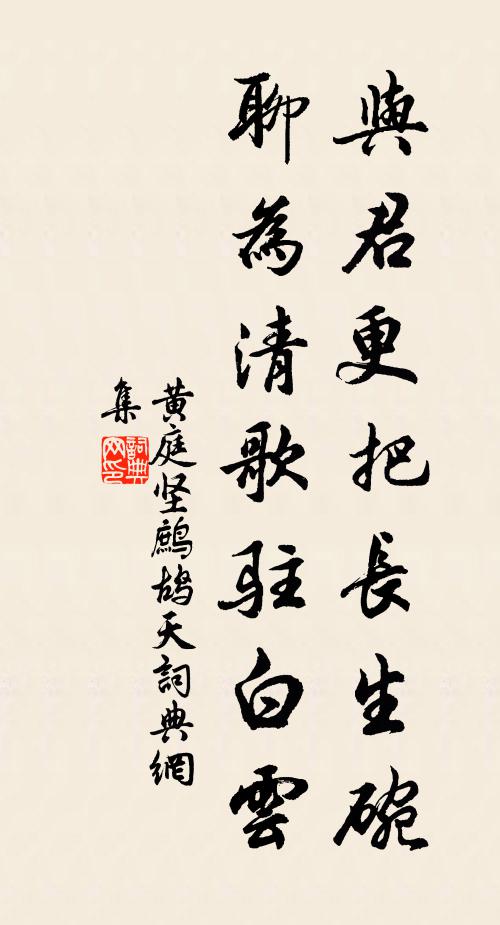 與君更把長生碗
聊為清歌駐白雲
黄庭坚鷓鴣天詞典網
集
詞典網印